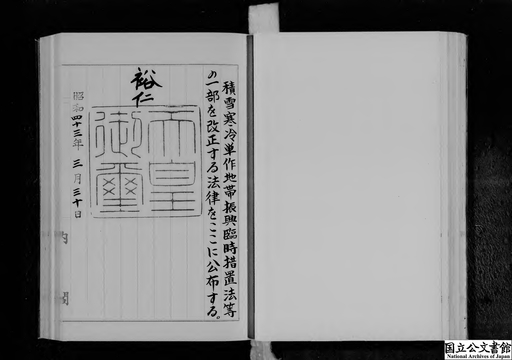 積雪寒冷単作地帯振興臨時措置法等
の一部を改正する法律をここに公布する。
裕仁
天皇
御璽
昭和四十三年三月三十日
内閣
国立公文書館
National Archives of Japan